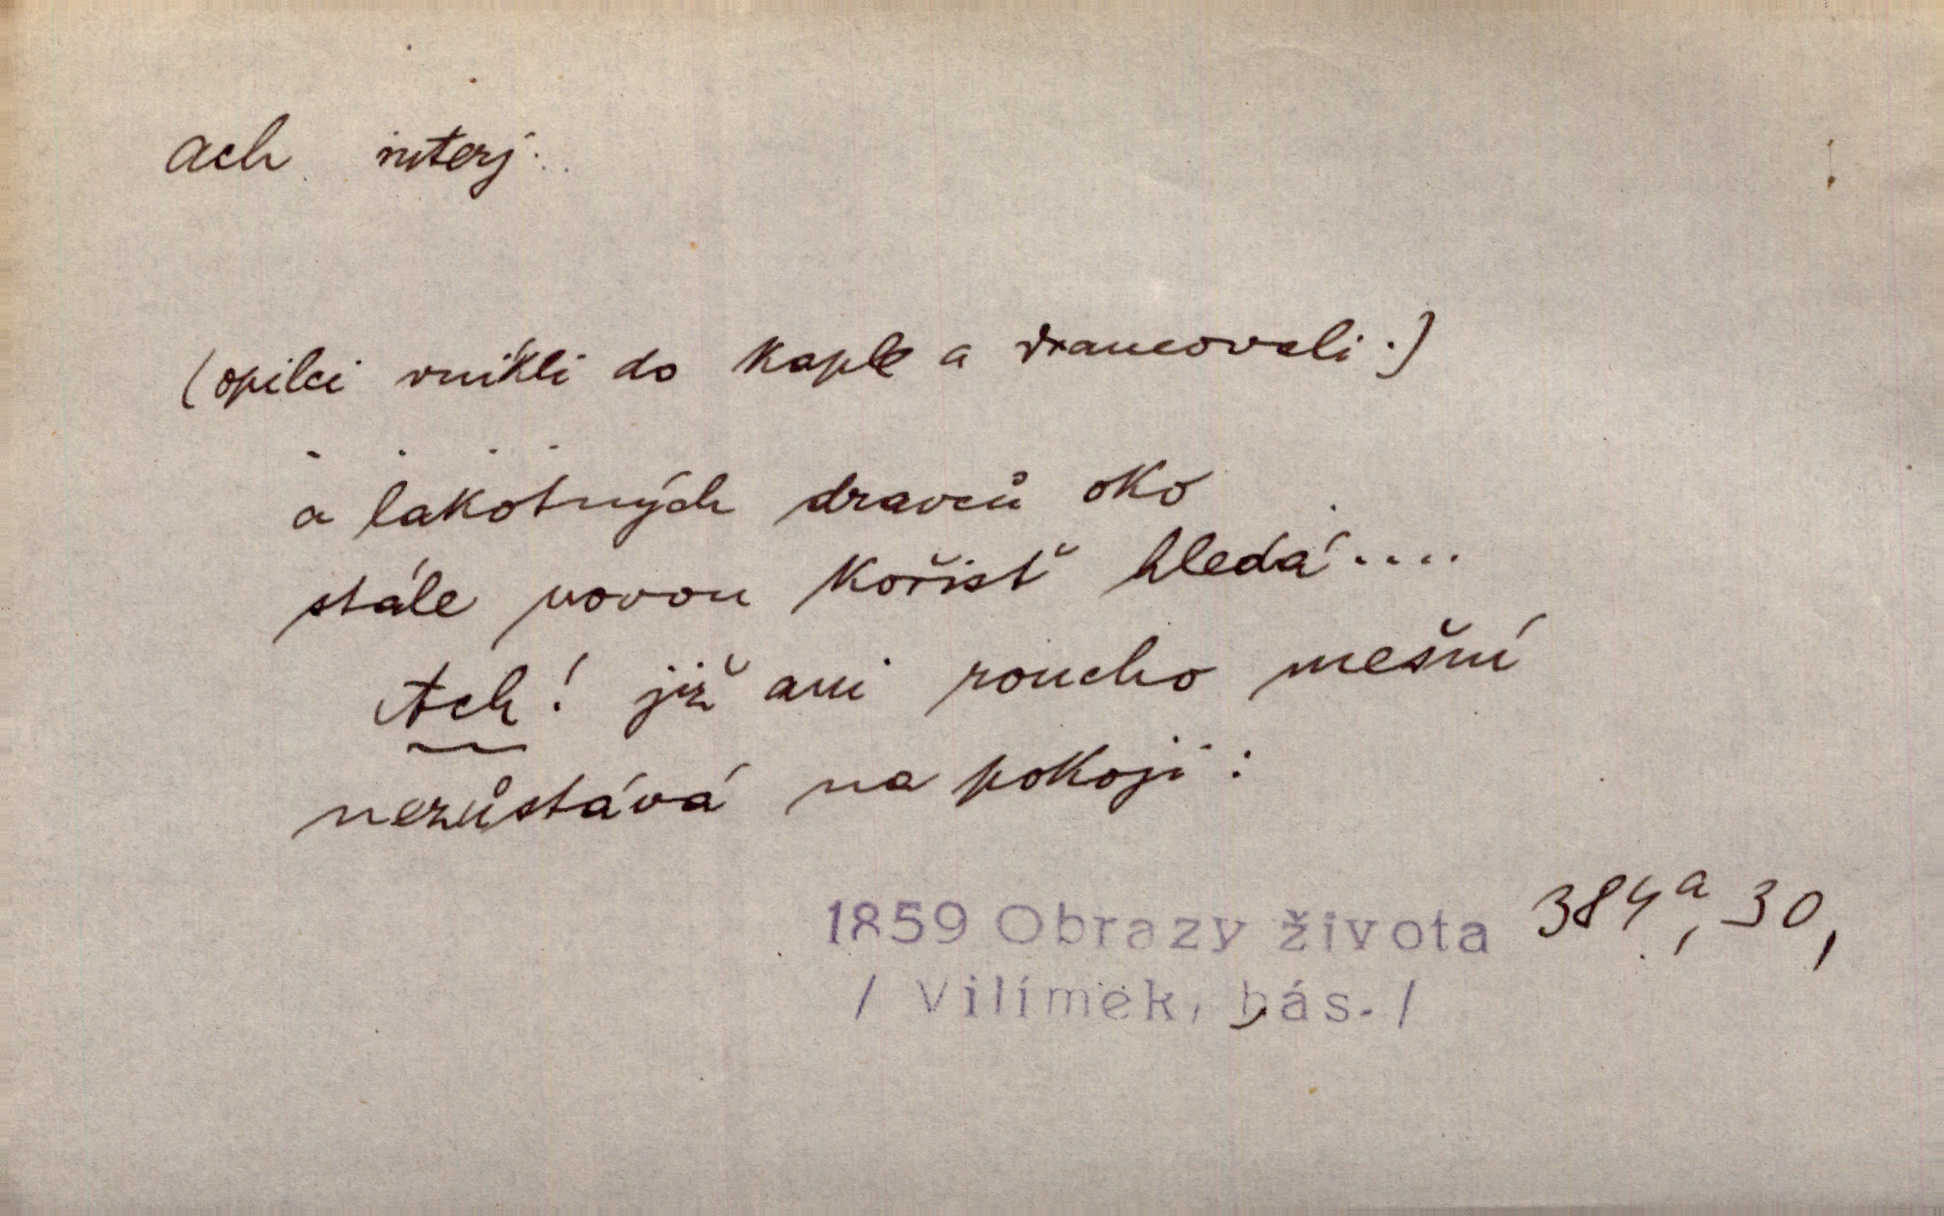 ach interj.
(opilci vnikli do kaple a drancovali.)
a lakotných dravců oko
stále novou kořisť hledá....
Ach! již ani roucho mešní
nezůstává na pokoji:
1859 Obrazy života 384a, 30,
/ Vilímek, bás. /